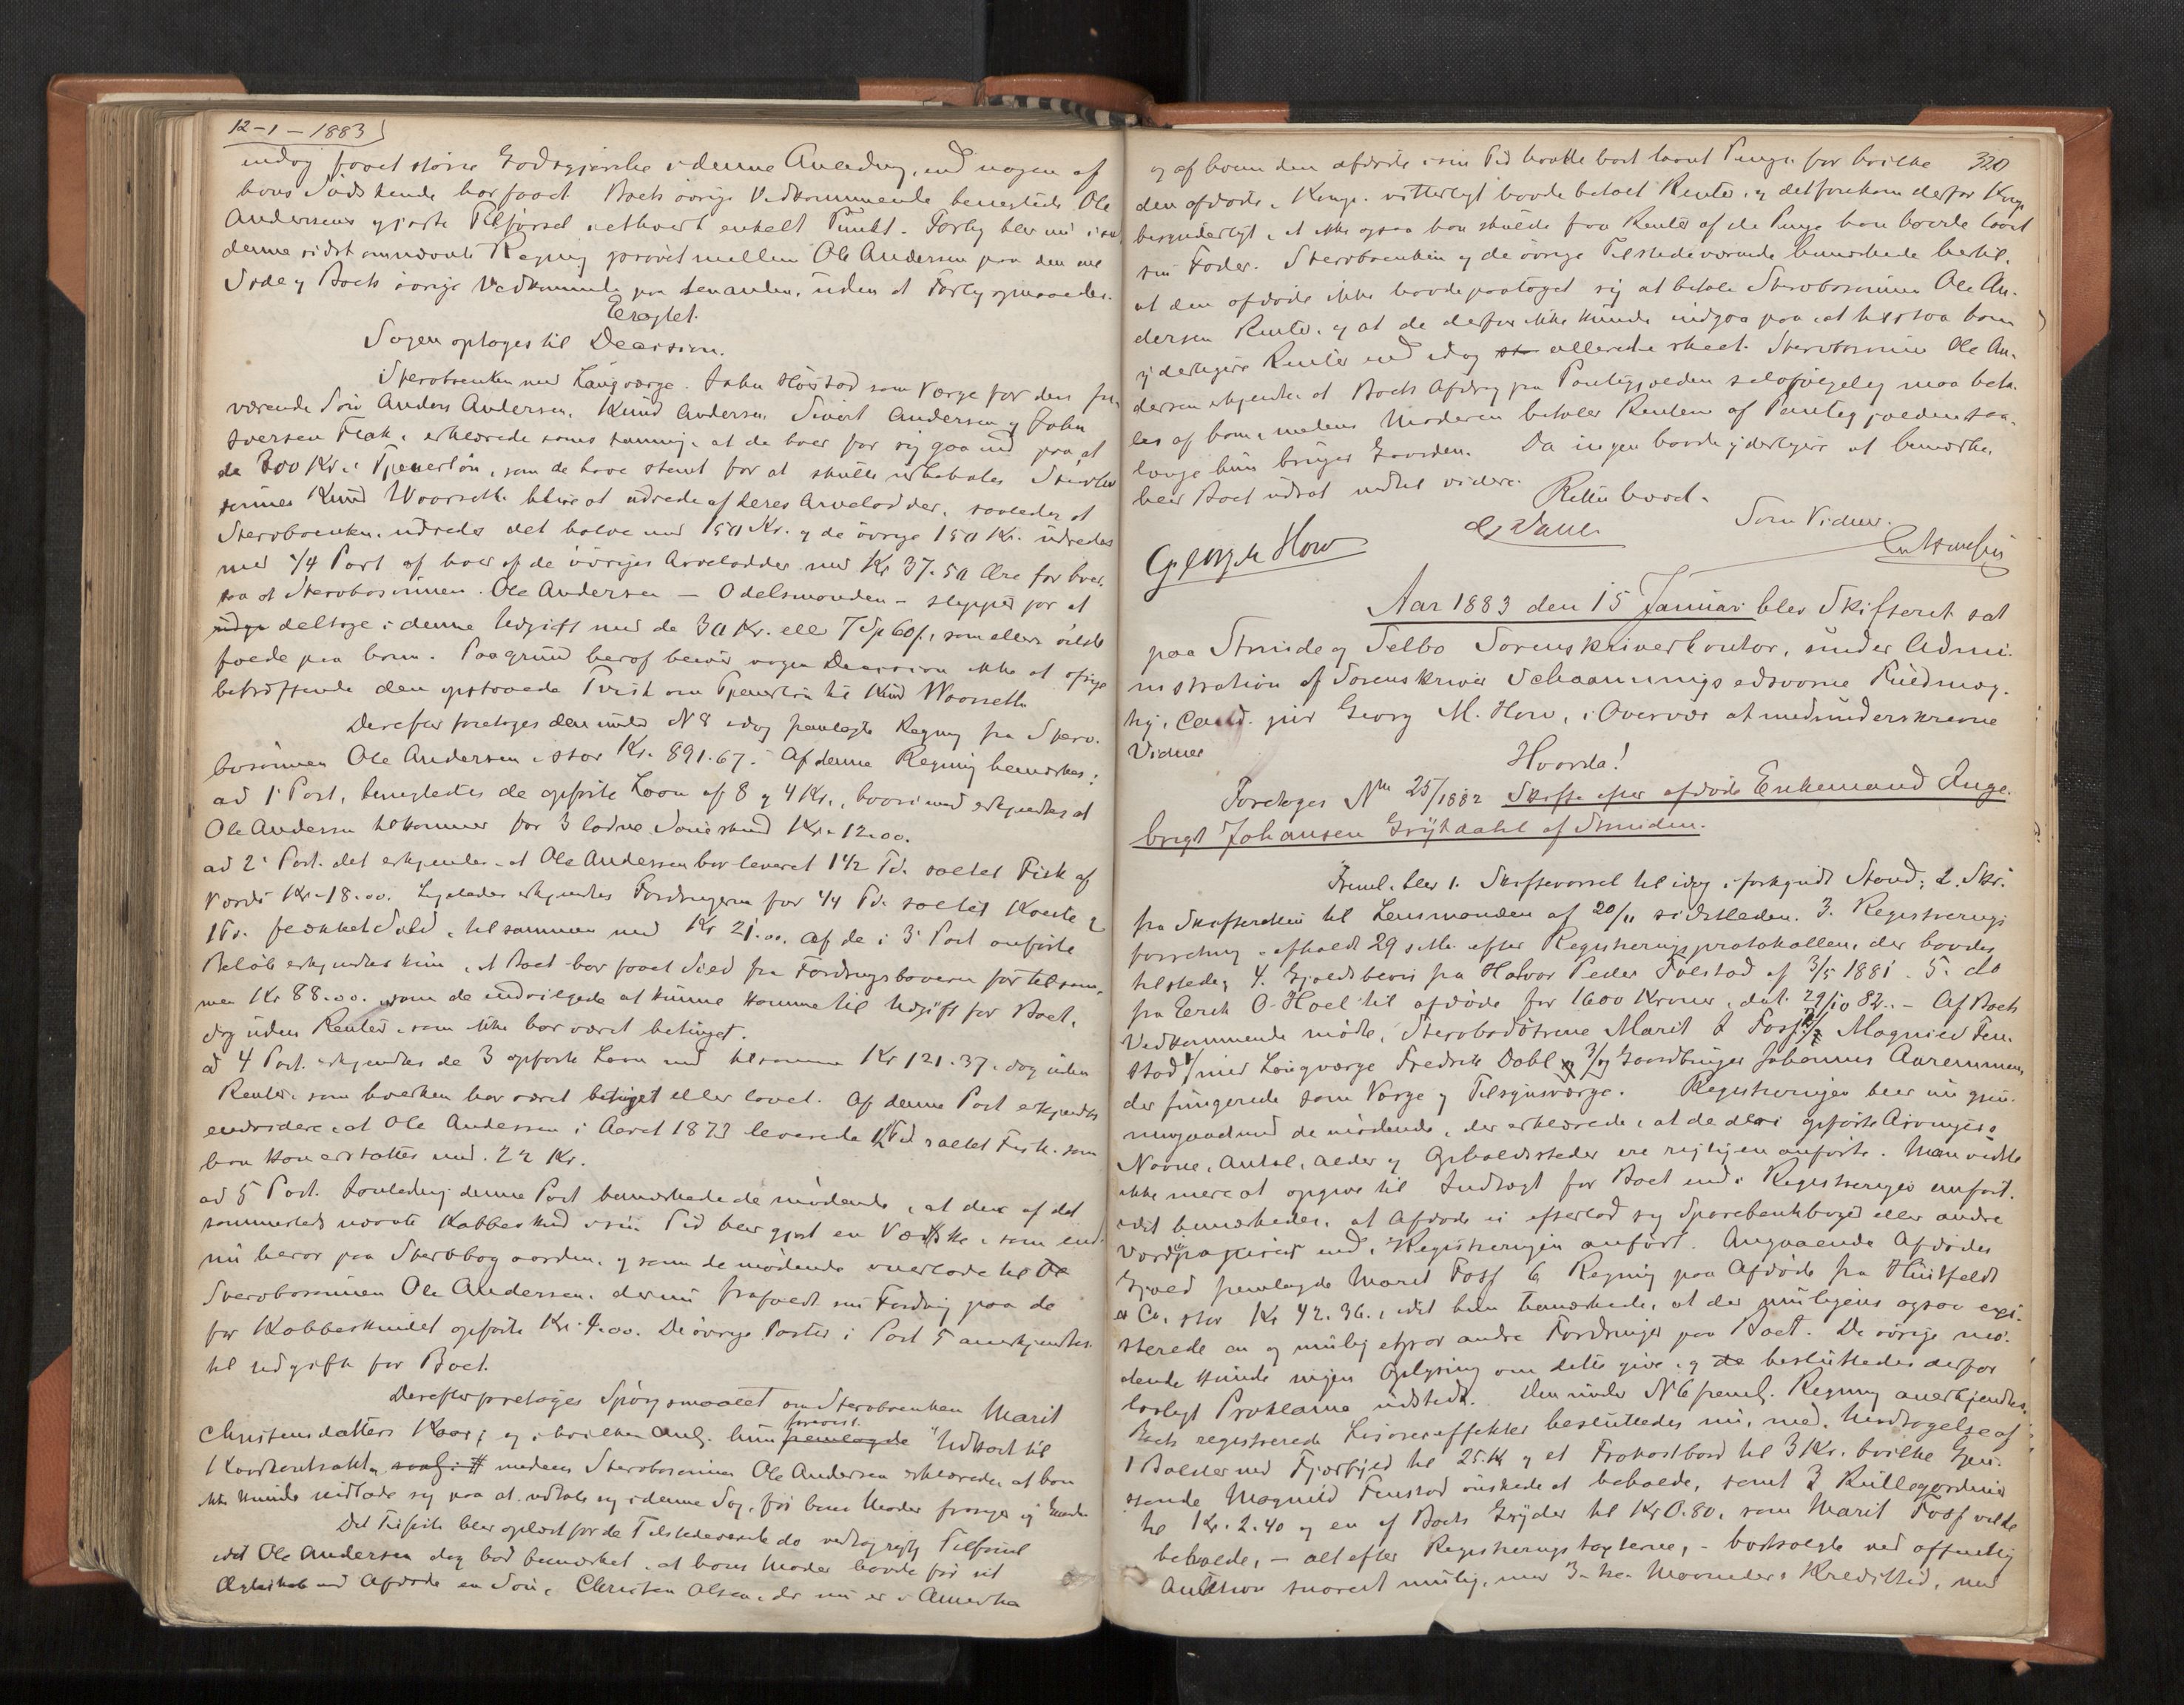 12-1-1883
endog faaet større Godtgjørelse i denne Anledng, end nogen af
hans Södskende har faaet Boets övrige Vedkommende benegtede Ole
Andersens gjorte Tilförsel i ethvert enkelt Punkt. Forlig blev nu
denne sidst omnævnte Regng prövet mellem Ole Andersen paa den ene
Side og Boets övrige Vedkommende paa den anden, uden at Forlig opnaaedes.
Eragtet.
Sagen optages til Decision.
Stervboenken med Laugværge. John som Værge for den fra
værende Sön Anders Andersen, Knud Andersen Sivert Andersen og John
Iversen Flak, erklærede samstemmig, at de hver for sig gaa ind paa, at
de 300 Kr. i Tjenerlön, som de have stemt for at skulle udbetales Stervbo
sönnen Knud Waarseth blive at udrede af deres Arvelodder, saaledes at
Stervboenken udreder det halve med 150 Kr. og de övrige 150 Kr. udredes
med 1/4 Part af hver af de övriges Arvelodder med Kr 37.50 Øre for hver,
saa at Stervbosönnen Ole Andersen - Odelsmanden - slipper for at
deltage i denne Udgift med de 30 Kr. eller 7 Sp 60 s, som ellers vilde
falde paa ham. Paagrund heraf bliver nogen Decision ikke at afsige
betræffende den opstaaede Tvist om Tjenerlön til Knud Waarseth
Derefter foretoges den under N 8 idag fremlagte Regng fra Sterv-
bosönnen Ole Andersen, stor Kr. 891.67. Af denne Regning bemærkes:
ad 1' Post, benegtedes de opførte Laan af 8 og 4 Kr., hvorimod erkjendtes at
Ole Andersen tilkommer for 3 lodne Saueskind Kr. 12.00.
ad 2' Post. det erkjendes at Ole Andersen har leveret 1 1/2 Td. saltet Fisk af
Værdi Kr. 18.00. Ligeledes erkjendtes Fordringerne for 1/4 Td. saltet
1 Td. Sild, tilsammen med Kr 21.00. Af de i 3' Post anførte
Belöb erkjendtes kun, at Boet har faaet Sild fra Fordringshaveren for tilsam-
men Kr 88.00. som de indvilgede at kunne komme til Udgift for Boet,
dog uden Renter, som ikke har været betinget.
ad 4 Post. erkjendtes de 3 opførte Laan med tilsammen Kr 121.37. dog uden
Renter, som hverken har været betinget eller lovet. Af denne Post erkjendtes
endvidere, at Ole Andersen i Aaret 1873 leverede 1/2 Td saltet Fisk. som
han kan erstattes med 22 Kr.
ad 5 Post. I anledng denne Post bemærkede de mödende, at der af det
sammesteds nævnte Kobbeskind i sin Tid blev gjort en, som end
nu beror paa Stervbogaarden, og som de mödende overlode til
Stervbosönnen Ole Andersen, der nu frafaldt sin Fordring paa de
for Kobbeskindet opførte Kr. 4.00. De övrige Poster i Post 5 anerkjendtes
til udgift for Boet.
Derefter foretoges Spörgsmaalet om Stervboenken Marit
Christensdatters Kaar, og i hvilken anlg. hun fremlagde forevist. "Udkast til
Kaarkontrakt", medens Stervbosönnen Ole Andersen erklærede, at han
ikke kunde indlade sig paa at udtale sig i denne Sag, för hans Moder
Det Tilførte blev oplæst for de Tilstedeværende do vedtog rigtig Tilført
idet Ole Andersen dog bad bemærket, at hans Moder havde för sit
Ægteskab med Afdöde en Sön, Christen Olsen, der nu er i Amerika
320
og af hvem den afdöde i sin Tid havde laant Penge for hvilke
den afdöde, vitterligt havde betalt Renter, og det forekom derfor
besynderligt, at ikke ogsaa han skulde faa Renter af de Penge han havde laant
sin Fader. Stervboenken og de övrige Tilstedeværende bemærkede hertil,
at den afdöde ikke havde paataget sig at betale Stervbosönnen Ole An-
dersen Renter, og at de derfor ikke kunde indgaa paa, at tilstaa ham
yderligere Renter end idag allerede skeet. Stervbosönnen Ole An-
dersen erkjendte at Boets Afdrag paa Pantegjælden selvfölgelig maa beta-
les af ham, medens Moderen betaler Renten af Pantegjælden saa-
længe hun bruger Gaarden. Da ingen havde yderligere at bemærke,
blev Boet udsat indtil videre.
Retten hævet.
Som Vidner.
George How
Aar 1883 den 15 Januar blev Skifteret sat
paa Strinde og Selbo Sorenskriverkontor, under Admi-
nistration af Sorenskriver Schaannings edsvorne Fuldmæg-
tig, Cand. jur Georg M. How, i Overvær af medunderskrevne
Vidner
Hvorda!
Foretoges No 25/1882 Skifte efter afdöde Enkemand Inge-
brigt Johansen af Strinden.
Freml. blev 1. Skiftevarsel til idag i forkyndt Stand, 2. Skr.
fra Skifteretten til Lensmanden af 20/11 sidstleden. 3. Registrerings
forretng afholdt 29 s. M. efter Registreringsprotokollen, der havdes
tilstede, 4. Gjældsbevis fra Halvor Peder Tolstad af 3/5 1881. 5. do
fra Erik O. Hoel til afdöde for 1600 Kroner, dat. 29/10 82. - Af Boets
Vedkommende mödte, Stervbodötrene Marit I Foss 2/ Magnild Fen-
stad 1/ med Laugværge Fredrik Dahl 3/ og Gaardbruger Johannes Aaremmen,
der fungerede som Værge og Tilsynsværge. Registreringen blev nu gjen-
nemgaaet med de mödende, der erklærede, at de deri opførte Arvingers
Navne, Antal, Alder og Opholdssteder ere rigtigen anförte. Man vidste
ikke mere at opgive til Indtægt for Boet end i Registreringen anfört.
idet bemærkedes, at Afdöde ei efterlod sig Sparebankböger eller andre
Værdipapirer end i Registreringen anfört. Angaaende Afdödes
Gjæld fremlagde Marit Foss 6 Regning paa Afdöde fra Huitfeldt
& Co. stor Kr 42.36., idet hun bemærkede, at der muligens ogsaa exi-
sterede en og mulig et par andre Fordringer paa Boet. De övrige mö-
dende kunde ingen Oplysning om dette give, og besluttedes derfor
lovligt Proklama udstedt. Den under N 6 freml. Regning anerkjendtes.
Boets registrerede Lösöreeffekter besluttedes nu, med Undtagelse af
1 Bolster med Fjærfyld til 25 Kr og et Frokostbord til 3 Kr. hvilke Gjen-
stande Magnild Fenstad önskede at beholde, samt 3 Rullegardiner
til Kr. 2.40 og en af Boets Gryder til Kr 0.80, som Marit Foss vilde
beholde, - alt efter Registreringstaxterne, - bortsolgte ved offentlig
Auktion snarest mulig, med 3- tre Maaneders Kredittid, med